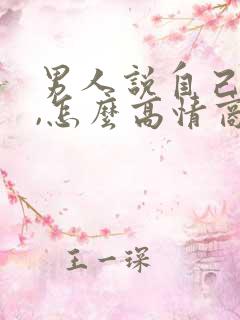 男人說自己
,怎麼高情商
王一琛